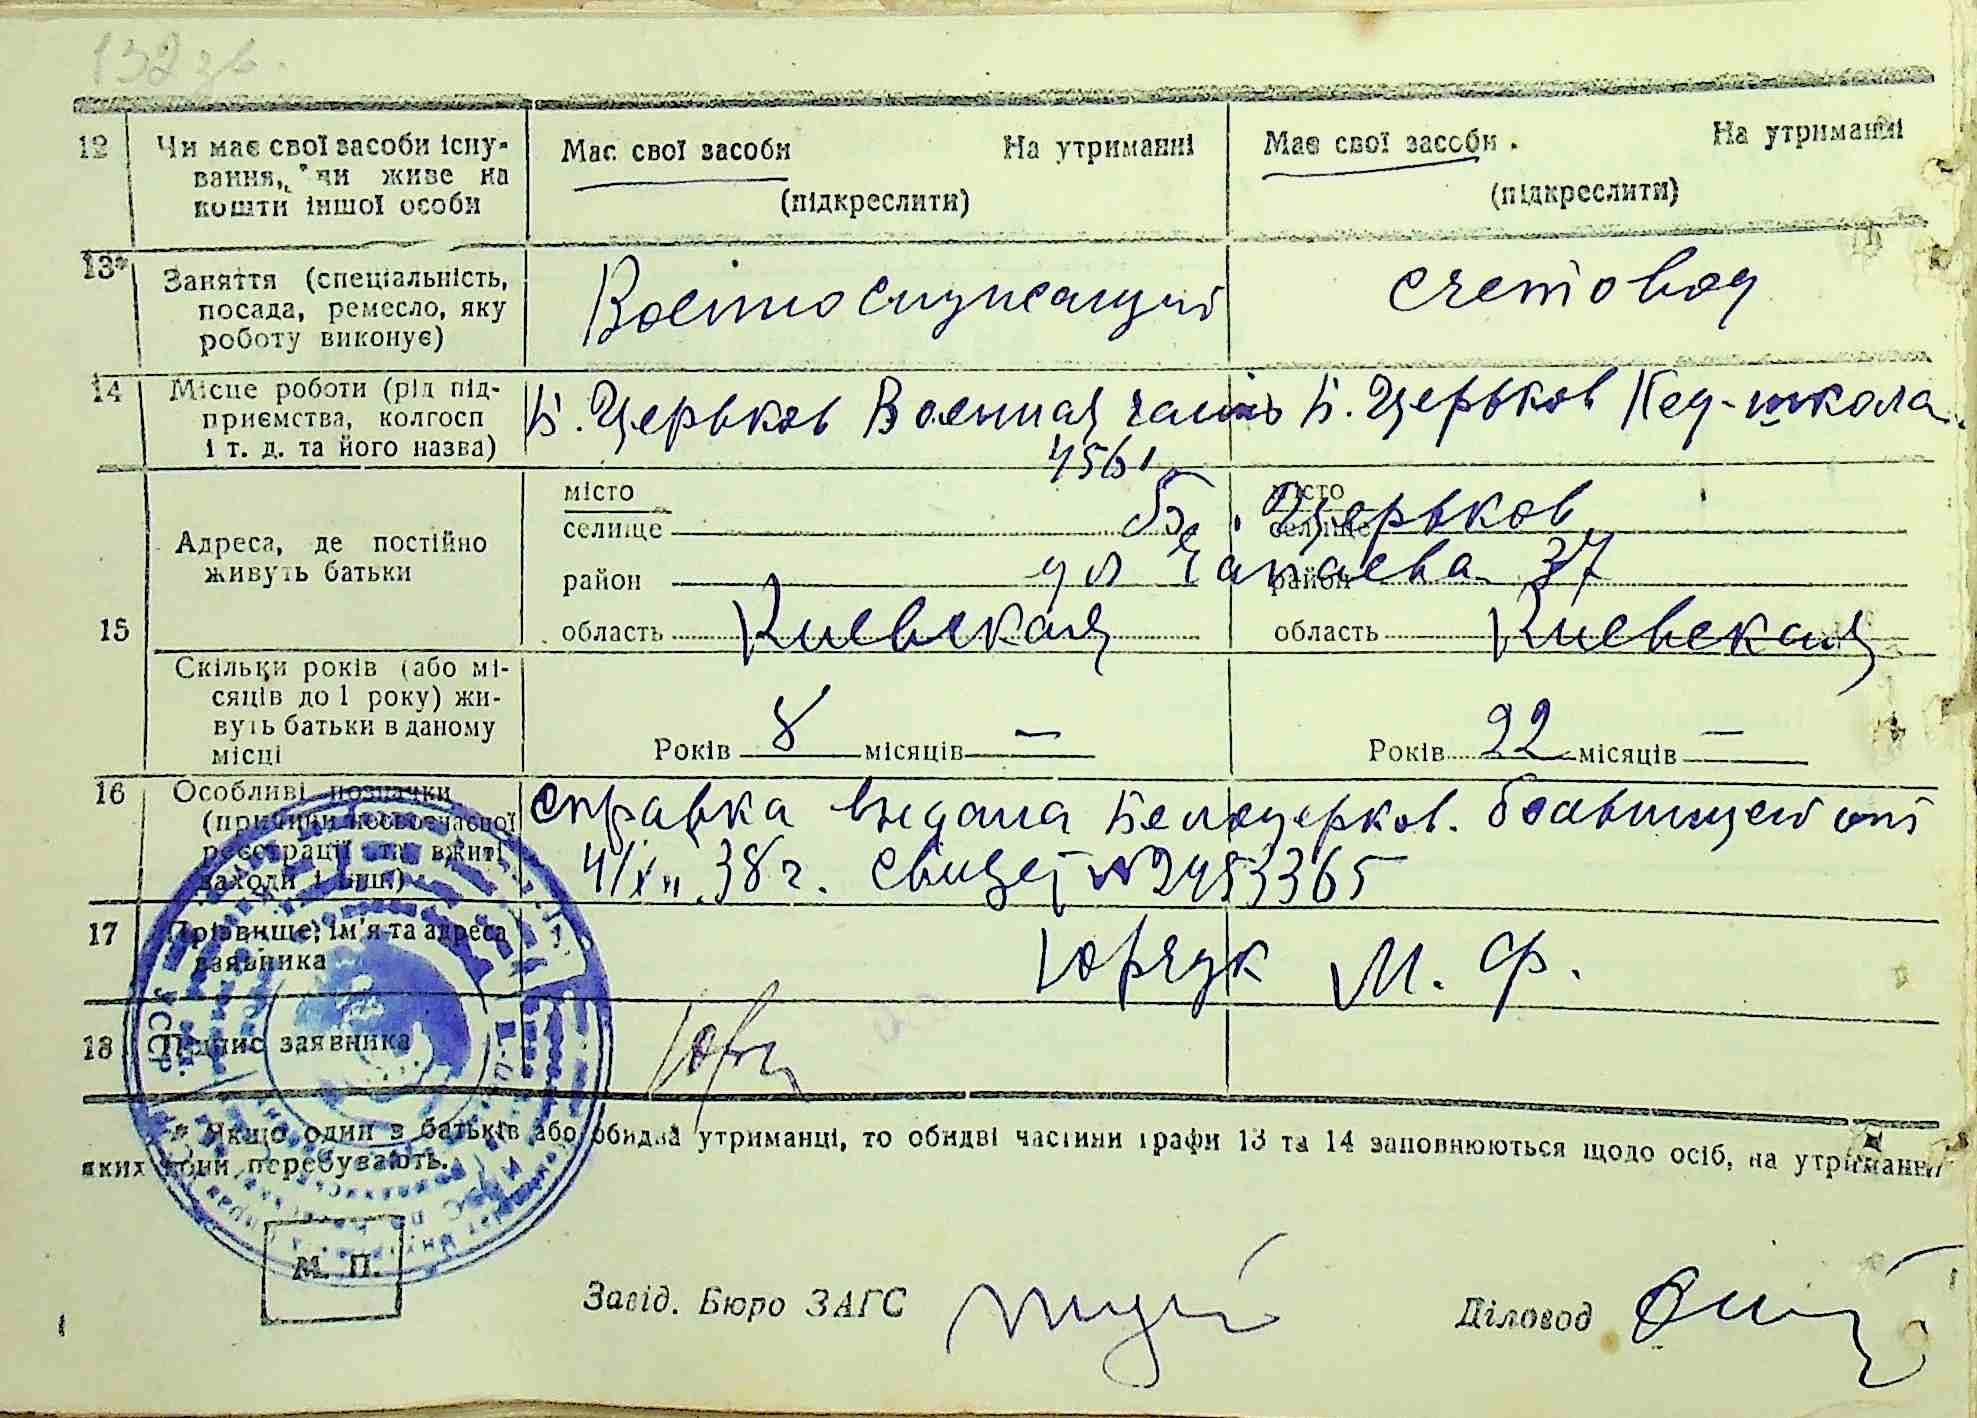 132 зв.
12 Чи має свої засоби існу-
вання, чи живе на
кошти іншої особи
Має свої засоби На утриманні
(підкреслити)
Має свої засоби На утриманні
(підкреслити)
13* Заняття (спеціальність,
посада, ремесло, яку
роботу виконує)
Военнослужащий
счетовод
14 Місце роботи (рід під-
приємства, колгосп
і т. д. та його назва)
Б. Церьков Военная часть
4561
Б. Церьков Пед-школа
15 Адреса, де постійно
живуть батьки
місто
селище
район
область Киевская
місто
селище
район
область Киевская
Б. Церьков
ул Чапаева 37
Скільки років (або мі-
сяців до 1 року) жи-
вуть батьки в даному
місці
Років 8 місяців —
Років 22 місяців —
16 Особливі позначки
(причини несвоєчасної
реєстрації та вжиті
заходи і інш.)
справка выдана Белоцерков. больницей от
4/XII 38 г. свидет №2453365
17 Прізвище, ім'я та адреса
заявника
Юрчук М. Ф.
18 Підпис заявника
* Якщо один з батьків або обидва утриманці, то обидві частини графи 13 та 14 заповнюються щодо осіб, на утриманні
яких вони перебувають.
УССР
М. П.
Завід. Бюро ЗАГС
Діловод